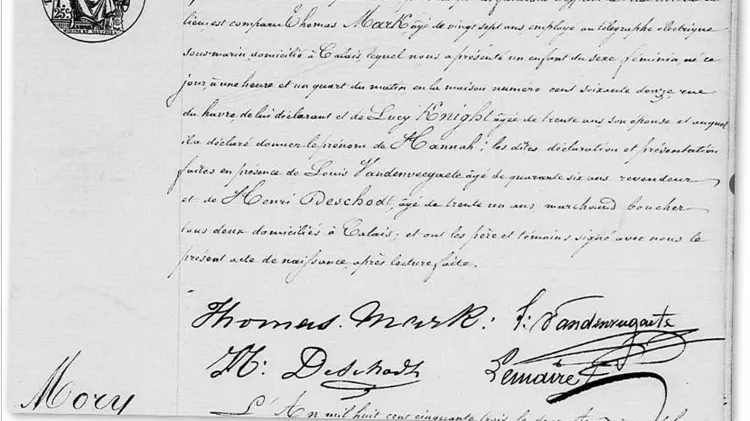 25c
lieu est comparu Thomas Mark âgé de vingt sept ans employé au télégraphe électrique
sous-marin, domicilié à Calais, lequel nous a présenté un enfant du sexe féminin, né ce
jour, à une heure et un quart du matin, en la maison numero cent soixante douze, rue
du havre, de lui déclarant et de Lucy Knight âgée de trente ans, son épouse et auquel
il a déclaré donner le prénom de Hannah: les dites déclaration et présentation
faites en présence de Louis Vandenveegaete âgé de quarante six ans revendeur
et de Henri Deschodt, âgé de trente un ans, marchand boucher
tous deux domiciliés à Calais; et ont les père et témoins signé avec nous le
présent acte de naissance, après lecture faite.
Thomas. Mark: Vandenvugaete
H: Deschodt Lemaire
Mory
L'An mil huit cent cinquante trois le